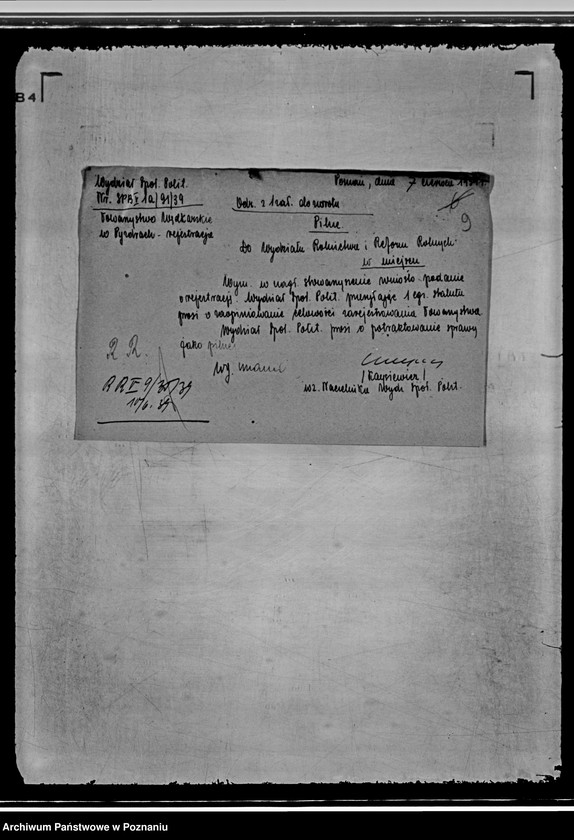 B4
Wydział Społ. Polit.
Nr. SPB I 1a/91/39
Poznań, dnia 7 czerwca
Odr. z 1 zał. do zwrotu
9
Towarzystwo Wędkarskie
w Pyzdrach - rejestracja
Pilne.
Do Wydziału Rolnictwa i Reform Rolnych
w miejscu
Wym. w nagł. stowarzyszenie wniosło podanie
o rejestrację. Wydział Społ. Polit. przesyłając 1 egz. statutu
prosi o zaopiniowanie celowości zarejestrowania Towarzystwa.
Wydział Społ. Polit. prosi o potraktowanie sprawy
jako pilnej
R. R.
wz. Naczelnika Wydz. Społ. Polit.
RR II 9/35/39
10/6. 39.
Archiwum Państwowe w Poznaniu